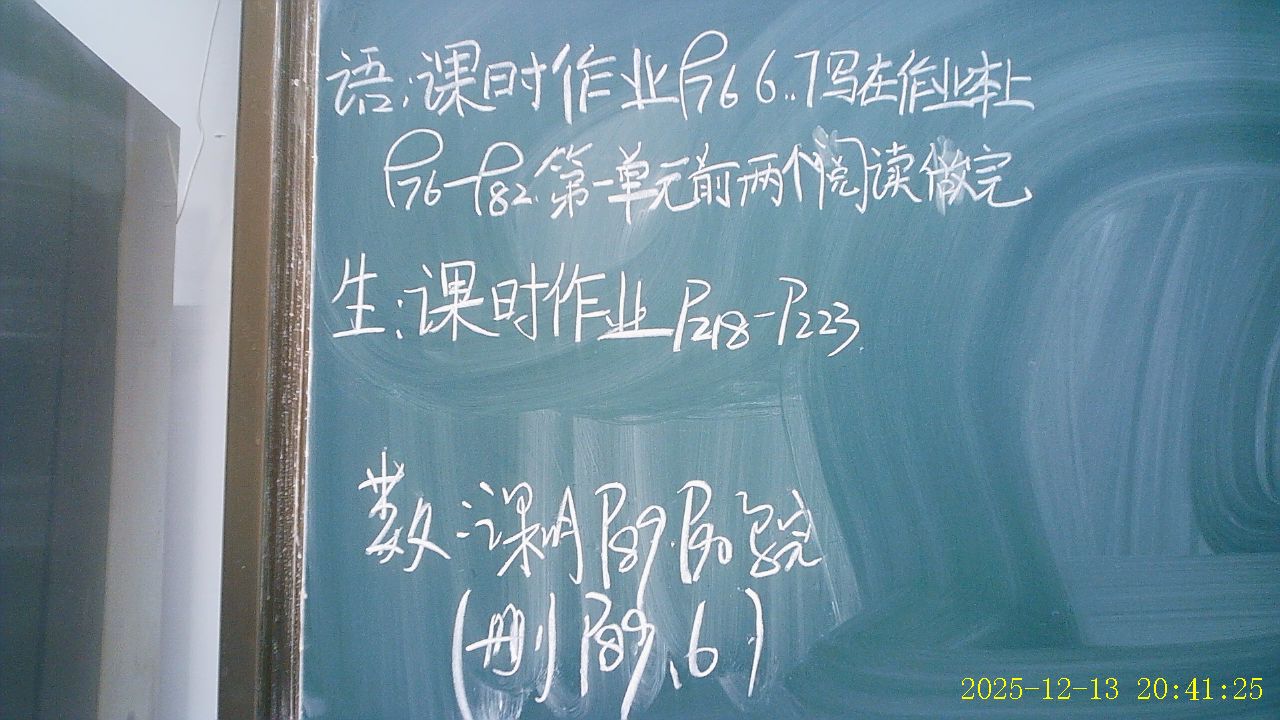 语:课时作业P76 6..7写在作业本上
P76-P82.第一单元前两个阅读做完
生:课时作业P218-P223.
数:课时P89.P90写完
(删P89、6)
2025-12-13 20:41:25